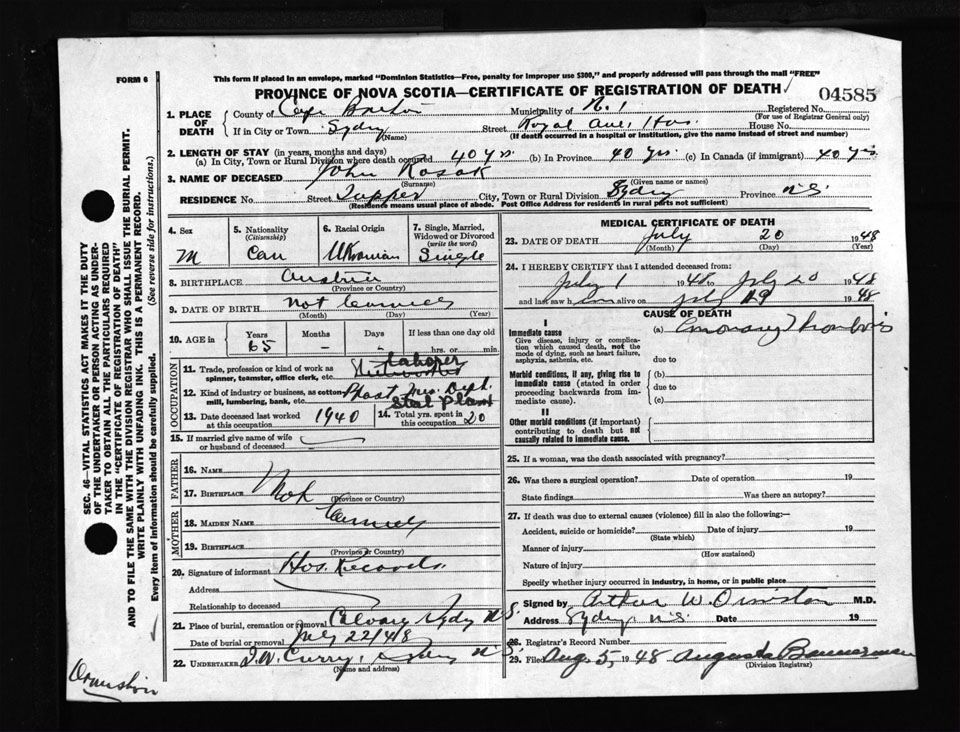 FORM 6
This form if placed in an envelope, marked "Dominion Statistics—Free, penalty for improper use $300," and properly addressed will pass through the mail "FREE"
PROVINCE OF NOVA SCOTIA—CERTIFICATE OF REGISTRATION OF DEATH
04585
1. PLACE OF DEATH
County of Cape Breton Municipality of N. 1 Registered No.
(For use of Registrar General only)
If in City or Town Sydney Street Royal Ave. Hos. House No.
(Name) (If death occurred in a hospital or institution, give the name instead of street and number)
2. LENGTH OF STAY (in years, months and days)
(a) In City, Town or Rural Division where death occurred 40 yrs. (b) In Province 40 yrs. (c) In Canada (if immigrant) 40 yrs
3. NAME OF DECEASED John Kosak
(Surname) (Given name or names)
RESIDENCE No. Street Tupper City, Town or Rural Division Sydney Province N.S.
(Residence means usual place of abode. Post Office Address for residents in rural parts not sufficient)
4. Sex M
5. Nationality (Citizenship) Can
6. Racial Origin Ukranian
7. Single, Married, Widowed or Divorced (write the word) Single
8. BIRTHPLACE Austria
(Province or Country)
9. DATE OF BIRTH Not
(Month) (Day) (Year)
10. AGE in Years 65 Months – Days – If less than one day old hrs. or min.
OCCUPATION
11. Trade, profession or kind of work as spinner, teamster, office clerk, etc. Laborer
12. Kind of industry or business, as cotton mill, lumbering, bank, etc. Dept. Steel Plant
13. Date deceased last worked at this occupation 1940
14. Total yrs. spent in this occupation 20
15. If married give name of wife or husband of deceased
FATHER
16. NAME
17. BIRTHPLACE Not
(Province or Country)
MOTHER
18. MAIDEN NAME
19. BIRTHPLACE
(Province or Country)
20. Signature of informant Hos. Records.
Address
Relationship to deceased
21. Place of burial, cremation or removal Calvary Sydney N.S.
Date of burial or removal July 22/48
22. UNDERTAKER J.W. Curry, Sydney N.S.
(Name and address)
MEDICAL CERTIFICATE OF DEATH
23. DATE OF DEATH July 20 1948
(Month) (Day) (Year)
24. I HEREBY CERTIFY that I attended deceased from:
July 1 1948 to July 20 1948
and last saw h im alive on July 19 1948
CAUSE OF DEATH
I
Immediate cause
Give disease, injury or complication which caused death, not the mode of dying, such as heart failure, asphyxia, asthenia, etc.
(a) Coronary Thrombosis
due to
Morbid conditions, if any, giving rise to immediate cause (stated in order proceeding backwards from immediate cause).
(b)
due to
(c)
II
Other morbid conditions (if important) contributing to death but not causally related to immediate cause.
25. If a woman, was the death associated with pregnancy?
26. Was there a surgical operation? Date of operation 19
State findings Was there an autopsy?
27. If death was due to external causes (violence) fill in also the following:—
Accident, suicide or homicide? Date of injury 19
(State which)
Manner of injury
(How sustained)
Nature of injury
Specify whether injury occurred in industry, in home, or in public place
Signed by Arthur W. Ormiston M.D.
Address Sydney, N.S. Date 19
28. Registrar's Record Number
29. Filed Aug 5, 1948 Augusta Bannerman
(Division Registrar)
SEC. 46—VITAL STATISTICS ACT MAKES IT THE DUTY
OF THE UNDERTAKER OR PERSON ACTING AS UNDERTAKER TO OBTAIN ALL THE PARTICULARS REQUIRED
IN THE "CERTIFICATE OF REGISTRATION OF DEATH"
AND TO FILE THE SAME WITH THE DIVISION REGISTRAR WHO SHALL ISSUE THE BURIAL PERMIT.
WRITE PLAINLY WITH UNFADING INK. THIS IS A PERMANENT RECORD.
Every item of information should be carefully supplied. (See reverse side for instructions.)
Ormiston